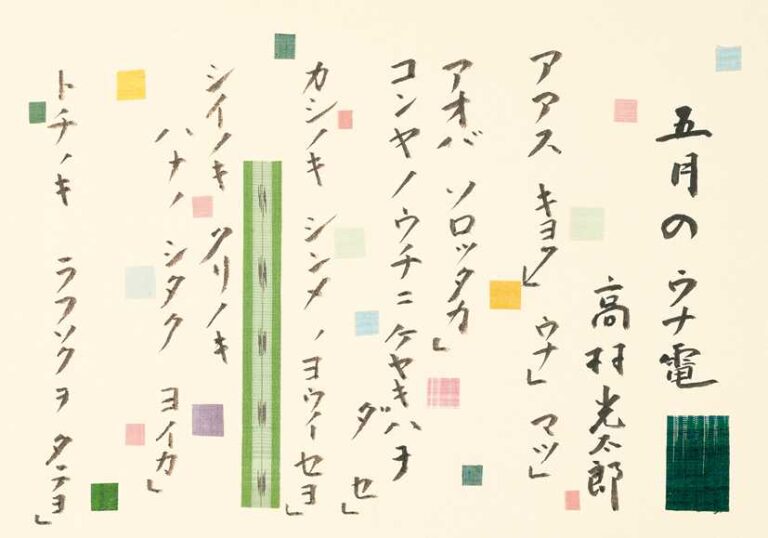 五月のウナ電
高村光太郎
アアス キヨク」 ウナ」 マツ」
アオバ ソロッタカ」
コンヤノウチニケヤキハヲ
ダセ」
カシノキ シンメノヨウイセヨ」
シイノキ クリノキ
ハナノ シタク ヨイカ」
トチノキ ラフソクヲ タテヨ」